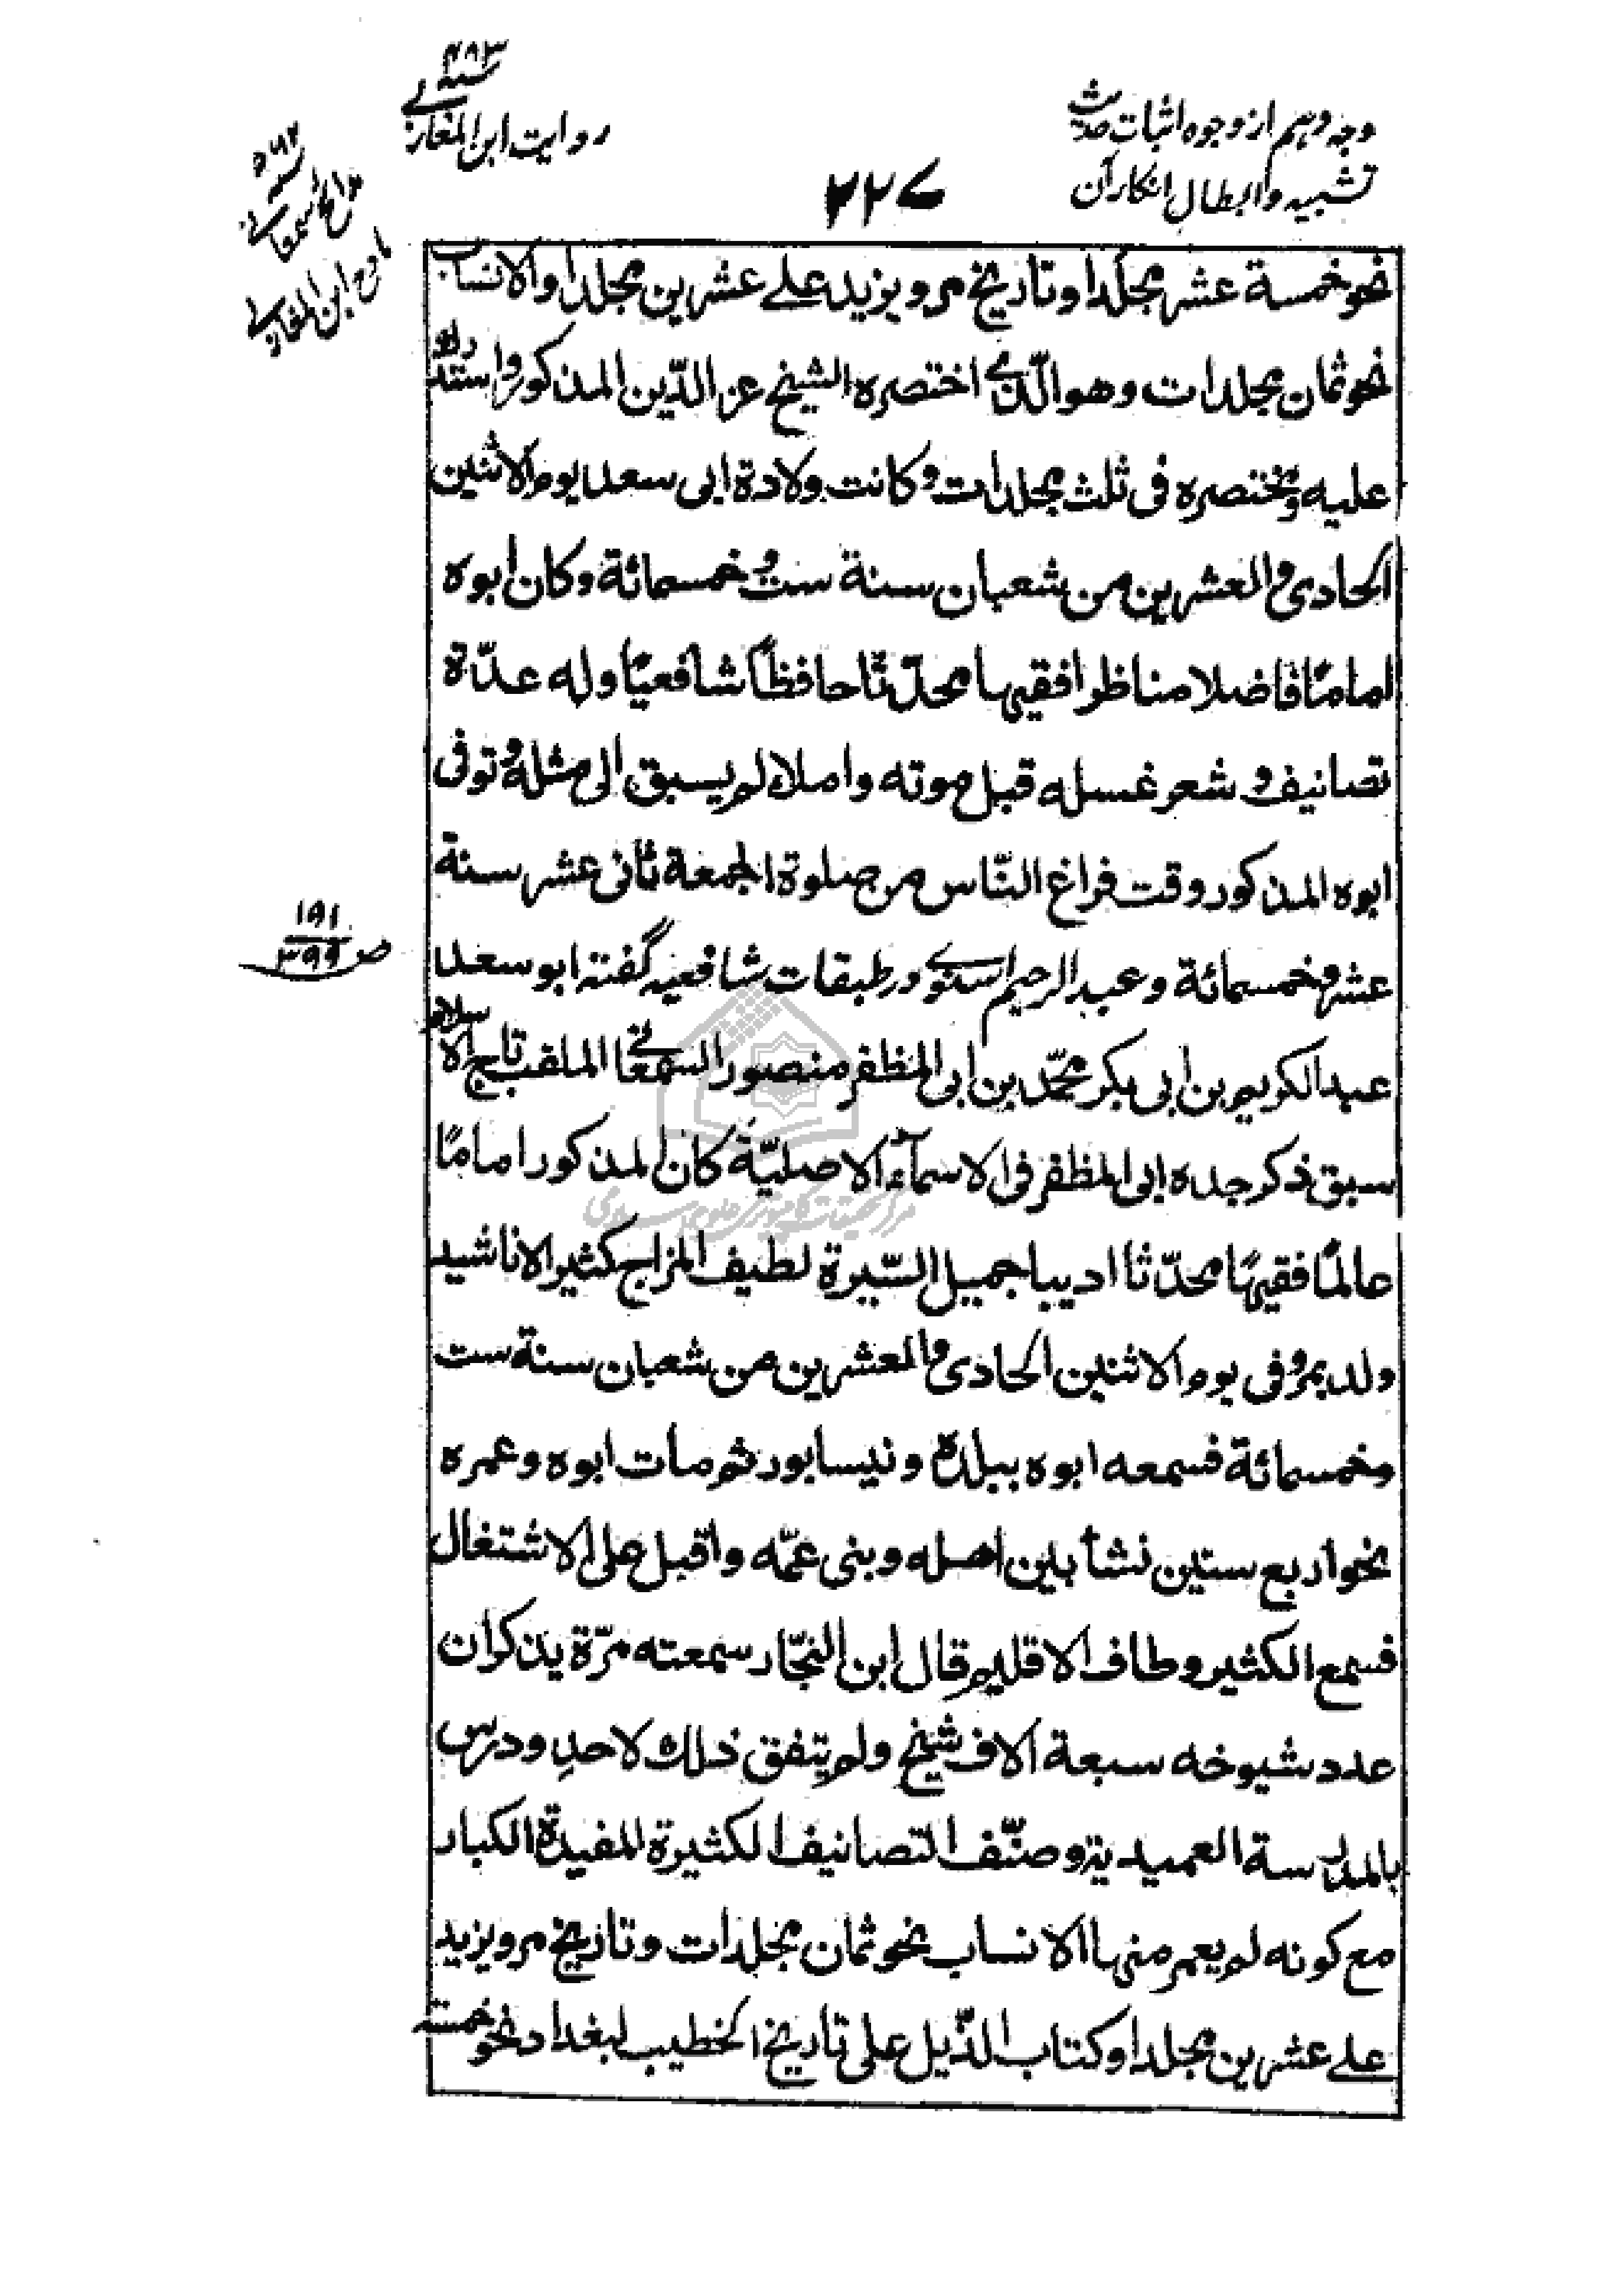 وجه دهم از وجوه اثبات حدیث
تشبیه و ابطال انکار آن
۲۲۷
۴۸۳
سنه
روایت ابن المغازلی
۵۶۲
سنه
مدائح سمعانی
مادح ابن المغازلی
نحو خمسة عشر مجلدا و تاریخ مرو یزید علے عشرین مجلدا و الانساب
نحو ثمان مجلدات و هو الّذی اختصره الشیخ عز الدّین المذکور و استدرك
علیه و مختصره فی ثلث مجلدات و کانت ولادة ابی سعد یوم الاثنین
الحادی و العشرین من شعبان سنة ست و خمسمائة و کان ابوه
اماما فاضلا مناظرا فقیها محدّثا حافظاً شافعیّا و له عدّة
تصانیف و شعر غسله قبل موته و املاء لم یسبق الی مثله و توفی
ابوه المذکور وقت فراغ النّاس من صلوة الجمعة ثانی عشر سنة
عشر و خمسمائة و عبد الرحیم اسنوی در طبقات شافعیه گفته ابو سعد
عبد الکریم بن ابی بکر محمّد بن ابی المظفر منصور السمعانی الملقب تاج الاسلام
سبق ذکر جده ابی المظفر فی الاسمآء الاصلیّة کان المذکور اماما
عالمًا فقیهًا محدّثا ادیبا جمیل السّیرة لطیف المزاج کثیر الاناشید
ولد بمرو فی یوم الاثنین الحادی و العشرین من شعبان سنة ست
و خمسمائة فسمعه ابوه ببلده و نیسابور ثم مات ابوه و عمره
نحو اربع سنین نشأ بین اهله و بنی عمّه و اقبل علی الاشتغال
فسمع الکثیر و طاف الاقلیم قال ابن النجّار سمعته مرّة یذکر ان
عدد شیوخه سبعة الاف شیخ و لم یتفق ذلك لاحدٍ و درس
بالمدرسة العمیدیة و صنّف التصانیف الکثیرة المفیدة الکبار
مع کونه لم یعمر منها الانساب نحو ثمان مجلدات و تاریخ مرو یزید
علے عشرین مجلدا و کتاب الذّیل علی تاریخ الخطیب لبغداد نحو خمسة
ص ۱۹۱
۳۹۹
مرکز تحقیقات کامپیوتری علوم اسلامی